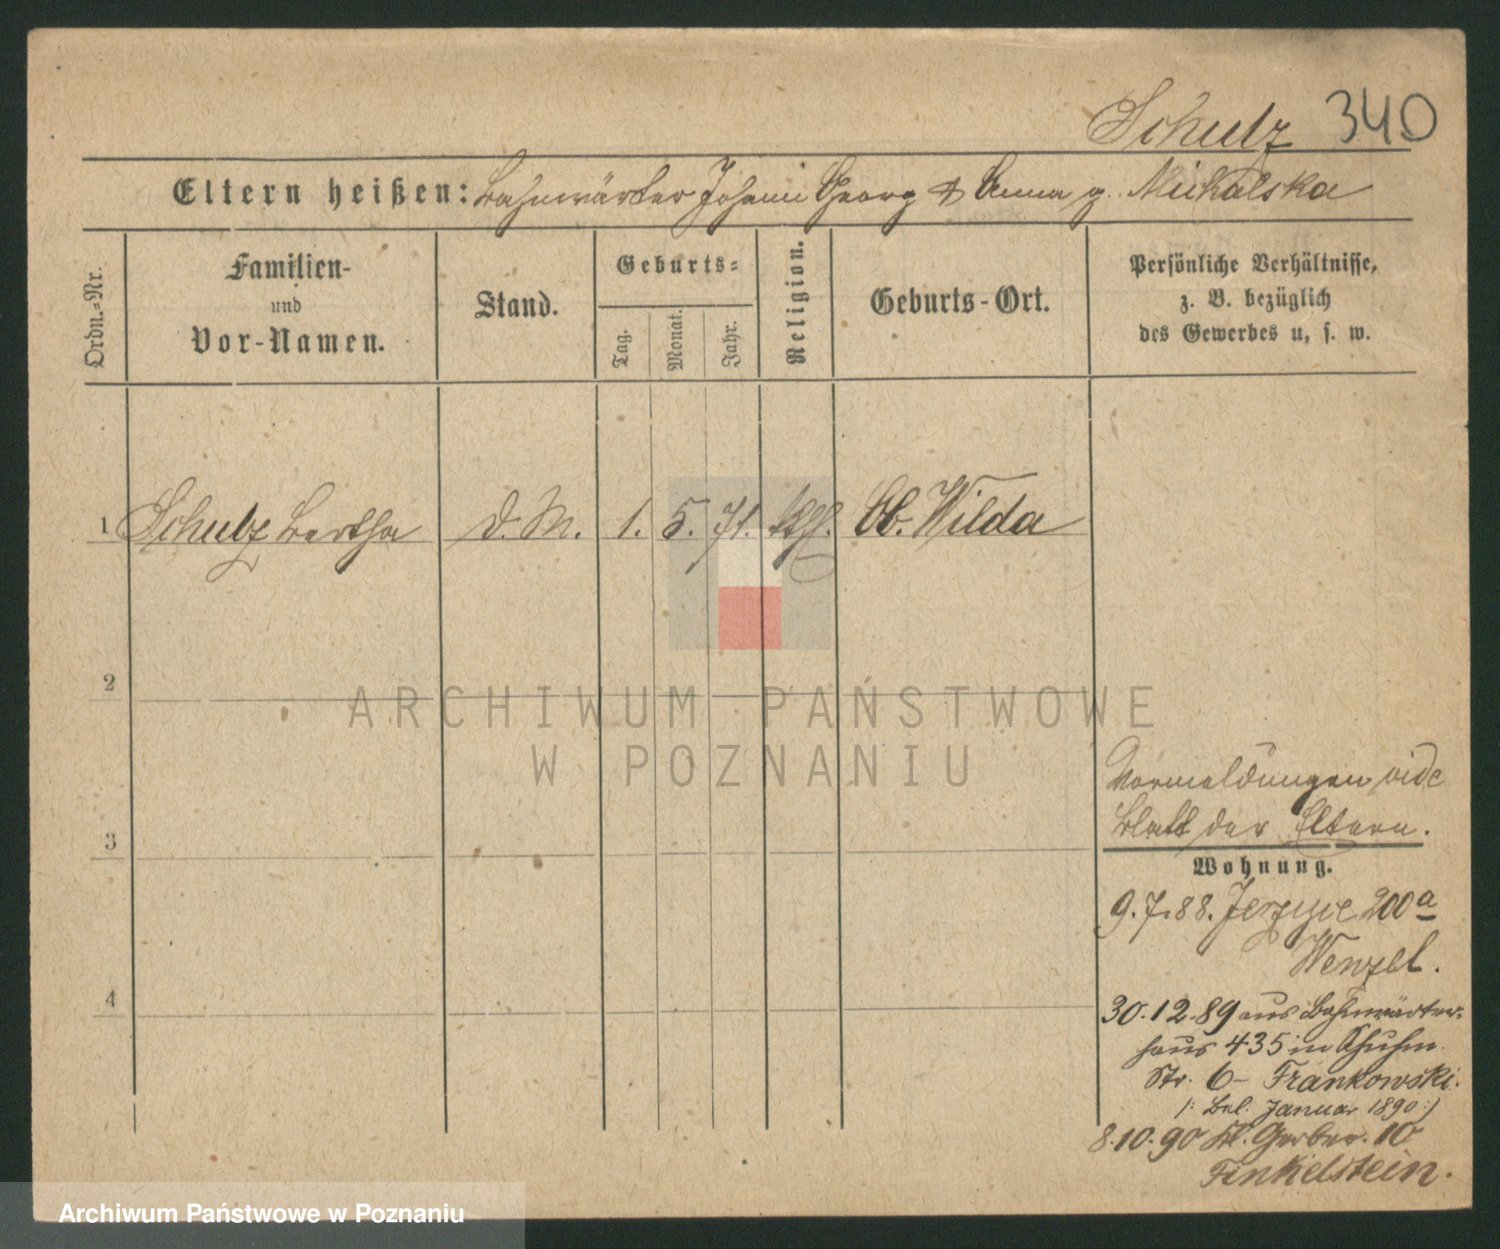 Schulz 340
Eltern heißen: Bahnwärter Johann Georg & Anna g. Michalska
Ordn.-Nr.
Familien-
und
Vor-Namen.
Stand.
Geburts-
Tag.
Monat.
Jahr.
Religion.
Geburts-Ort.
Persönliche Verhältnisse,
z. B. bezüglich
des Gewerbes u. s. w.
1 Schulz Bertha d. M. 1. 5. 71. Ob. Wilda
2
ARCHIWUM PAŃSTWOWE
W POZNANIU
Vormeldungen vide
Blatt der Eltern.
3
Wohnung.
9.7.88. Jerzyce 200a
Wenzel.
4
30.12.89 aus Bahnwärter-
haus 435 in
Str. 6 - Frankowski.
/: Bel. Januar 1890 :/
8.10.90 Kl. Gerber. 10
Finkelstein.
Archiwum Państwowe w Poznaniu